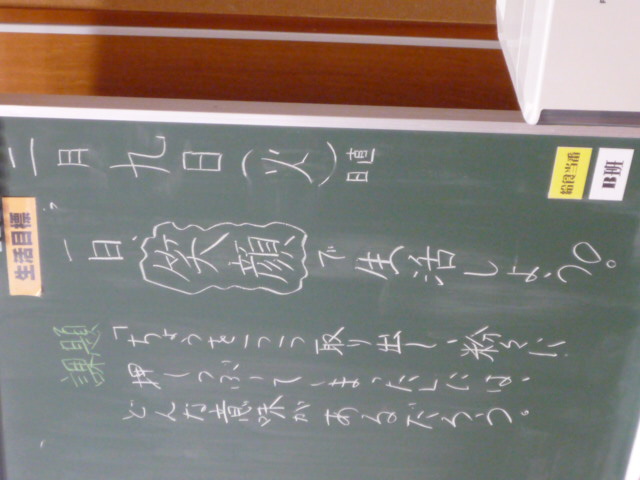 二月九日(火)日直
給食当番
生活目標
一日、笑顔で生活しよう。
課題
「ちょうを一つ一つ取り出し、粉々に
押しつぶしてしまった」には、
どんな意味があるだろう。